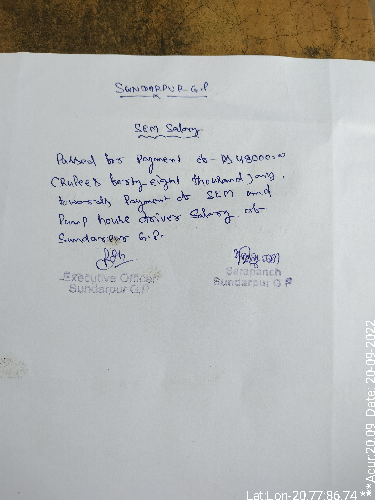 SUNDARPUR G.P
SEM Salary
Passed for Payment of Rs 48000=0
(Rupees forty-eight thousand) only.
towards Payment of SEM and
Pump house driver Salary of
Sundarpur G.P.
Executive Officer
Sundarpur G.P
Sarapanch
Sundarpur G.P
Lat Lon-20.77:86.74 ***Acur 20.09 Date: 20-09-2022